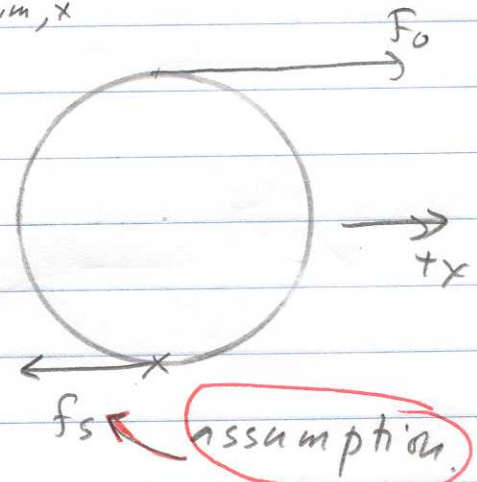 m, x
F₀
+x
fs
assumption.